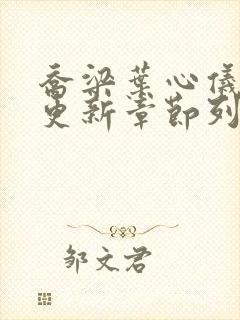 乔梁叶心仪
更新章节列
邹文君